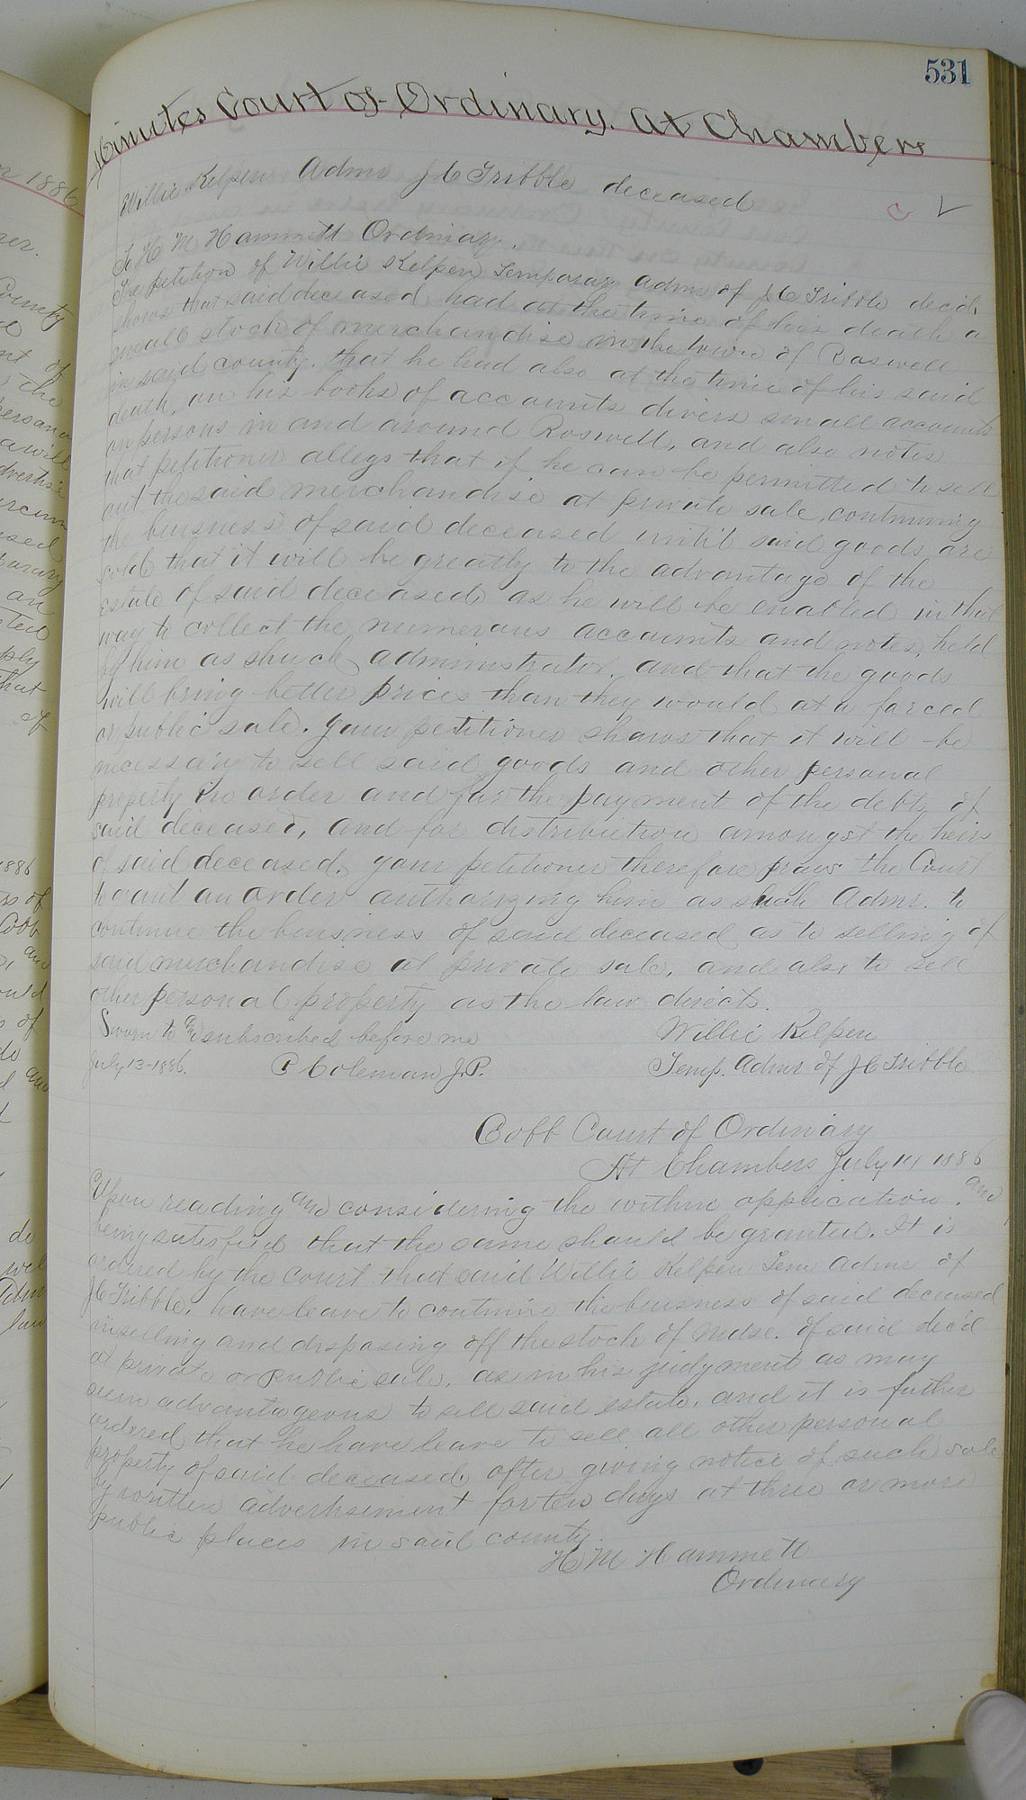 531
Minutes Court of Ordinary. at Chambers
Willie Kelpen Admr J C Tribble deceased
To H M Hammett Ordinary.
The petition of Willie Kelpen Temporary admr of J C Tribble decd.
shows that said deceased had at the time of his death a
small stock of merchandise in the town of Roswell
in said county. that he had also at the time of his said
death, on his books of accounts divers small accounts
on persons in and around Roswell, and also notes
that petitioner allegs that if he can be permitted to sell
out the said merchandise at private sale, continuing
the buisness of said deceased until said goods are
sold that it will be greatly to the advantage of the
estate of said deceased as he will be enabled in that
way to collect the numerous accounts and notes, held
by him as shuch administrator. and that the goods
will bring better prices than they would at a forced
or public sale. your petitioner shows that it will be
necessary to sell said goods and other personal
property in order and for the payment of the debts of
said deceased, and for distribution amongst the heirs
of said deceased. your petitioner therefore prays the Court
to grant an order authorizing him as such Admr. to
continue the buisness of said deceased as to selling of
said merchandise at private sale, and also to sell
other personal property as the law directs.
Sworn to and subscribed before me Willie Kelpen
July 13-1886. C Coleman J.P. Temp. Admr of J C Tribble
Cobb Court of Ordinary
At Chambers July 14 1886
Upon reading and considering the within application. and
being satisfied that the same should be granted. It is
ordered by the court that said Willie Kelpen Tem Admr of
J C Tribble. have leave to continue the buisness of said deceased
in selling and disposing off the stock of mdse. of said dec'd
at private or public sale. as in his judgment as may
seem advantageous to sell said estate. and it is futher
ordered that he have leave to sell all other personal
property of said deceased after giving notice of such sale
by written advertisement for ten days at three or more
public places in said county.
H M Hammett
Ordinary